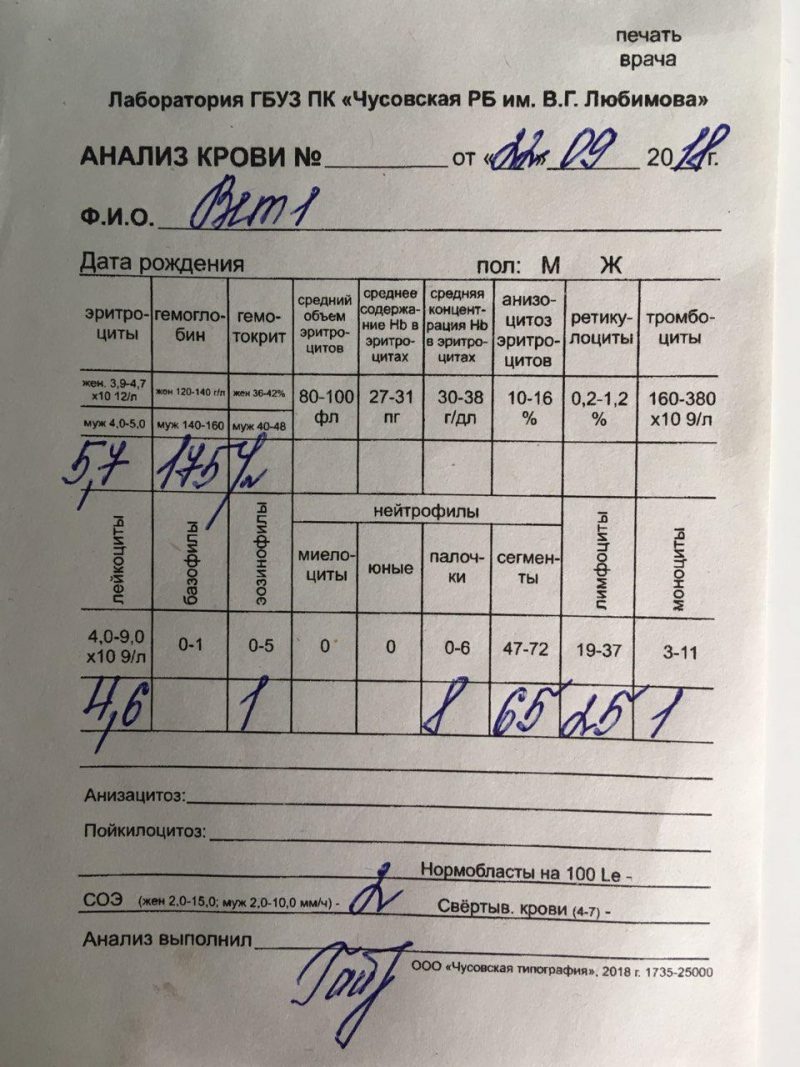 печать
врача
Лаборатория ГБУЗ ПК «Чусовская РБ им. В.Г. Любимова»
АНАЛИЗ КРОВИ № от «22» 09 2018г.
Ф.И.О. Вет 1
Дата рождения пол: М Ж
эритро-
циты
гемогло-
бин
гемо-
токрит
средний
объем
эритро-
цитов
среднее
содержа-
ние Hb в
эритро-
цитах
средняя
концент-
рация Hb
в эритро-
цитах
анизо-
цитоз
эритро-
цитов
ретику-
лоциты
тромбо-
циты
жен. 3,9-4,7
х10 12/л
жен 120-140 г/л
жен 36-42%
80-100
фл
27-31
пг
30-38
г/дл
10-16
%
0,2-1,2
%
160-380
х10 9/л
муж 4,0-5,0
муж 140-160
муж 40-48
5,7 175 г/л
лейкоциты
базофилы
эозинофилы
нейтрофилы
миело-
циты
юные
палоч-
ки
сегмен-
ты
лимфоциты
моноциты
4,0-9,0
х10 9/л
0-1
0-5
0
0
0-6
47-72
19-37
3-11
4,6 1 8 65 25 1
Анизацитоз:
Пойкилоцитоз:
Нормобласты на 100 Le -
СОЭ (жен 2,0-15,0; муж 2,0-10,0 мм/ч) - 2
Свёртыв. крови (4-7) -
Анализ выполнил
ООО «Чусовская типография», 2018 г. 1735-25000